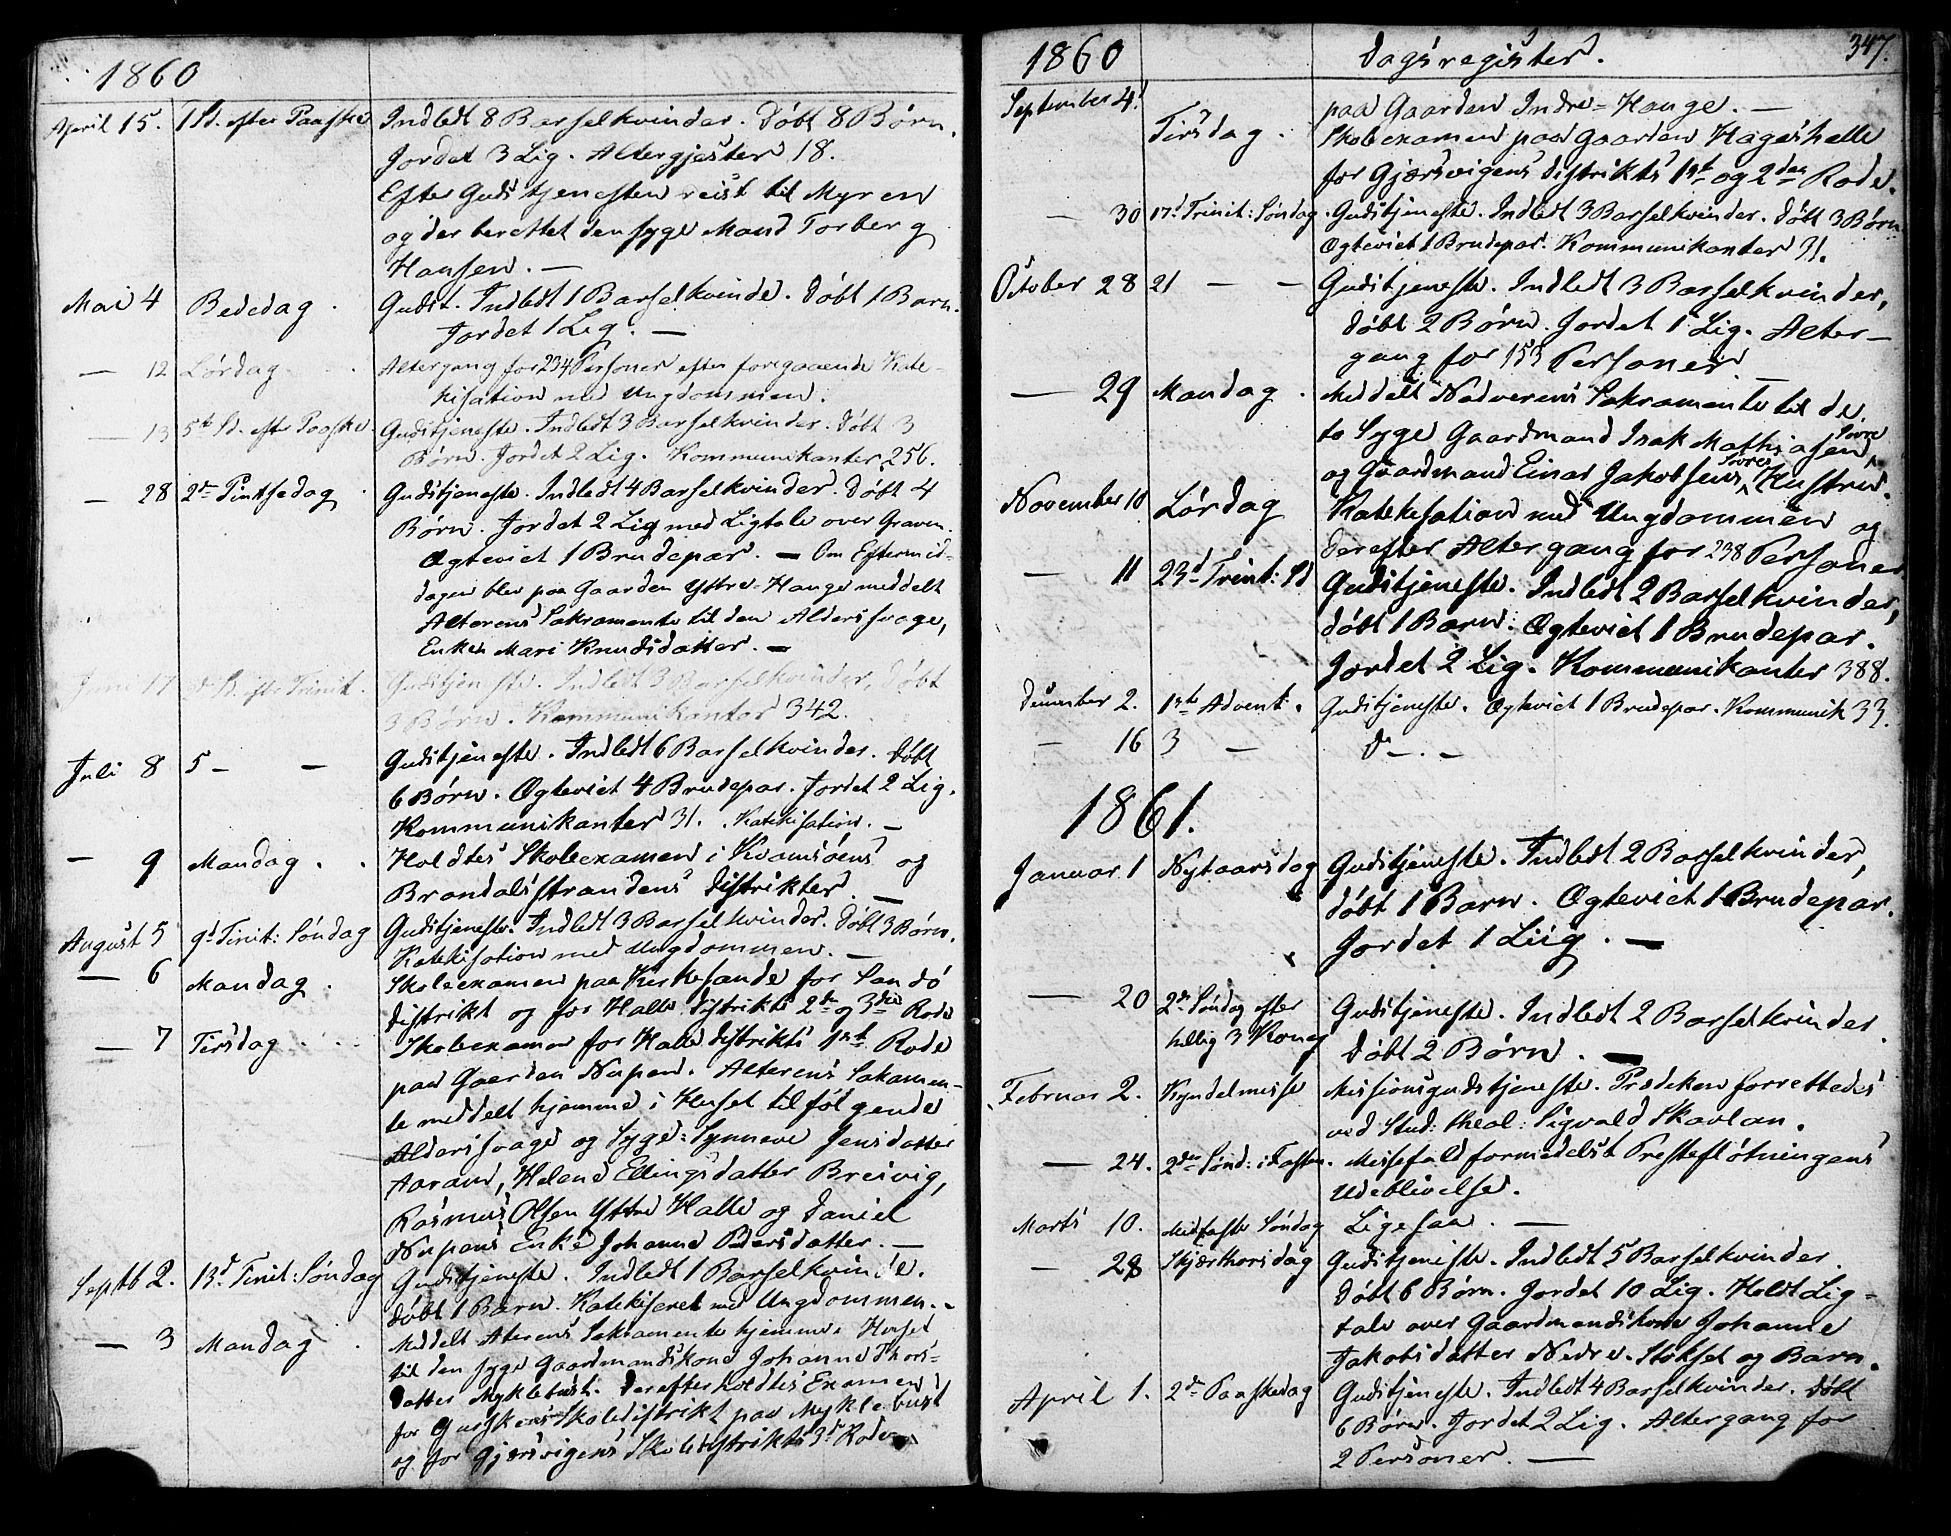 1860
April 15. 1 Sd. efter Paaske Indledt 8 Barselkvinder. Døbt 8 Børn.
Jordet 3 Lig. Altergjester 18.
Efter Gudstjenesten reist til Myren
og der berettet den syge Mand Torberg
Hansen. —
Mai 4 Bededag . Gudst. Indledt 1 Barselkvinde. Døbt 1 Barn.
Jordet 1 Lig. —
— 12 Lørdag . . Altergang for 234 Personer efter foregaaende Kate-
kisation med Ungdommen.
— 13 5te Sd. efter Paaske. Gudstjeneste. Indledt 3 Barselkvinder. Døbt 3
Børn. Jordet 2 Lig. Kommunikanter 256.
— 28 2den Pintsedag . Gudstjeneste. Indledt 4 Barselkvinder. Døbt 4
Børn. Jordet 2 Lig med Ligtale over Graven.
Ægteviet 1 Brudepar. — Om Eftermid-
dagen blev paa Gaarden Yttre-Hauge meddelt
Alterens Sakramente til den Aldersvage,
Enken Mari Knudsdatter. —
Juni 17 Sd. efter Trinit. Gudstjeneste. Indledt 3 Barselkvinder, Døbt
3 Børn. Kommunikanter 342.
Juli 8 5 — — Gudstjeneste. Indledt 6 Barselkvinder. Døbt
6 Børn. Ægteviet 4 Brudepar. Jordet 2 Lig.
Kommunikanter 31. Katekisation. —
— 9 Mandag . . Holdtes Skoleexamen i Kvamsøens og
Brandalsstrandens Distrikter. —
August 5 9d Trinit: Søndag Gudstjeneste. Indledt 3 Barselkvinder. Døbt 3 Børn.
Katekisation med Ungdommen. —
— 6 Mandag . Skoleexamen paa Kirkesande for Sandø
Distrikt og for Halle Distrikts 2den og 3die Rode
— 7 Tirsdag . . . Skoleexamen for Halle Distrikts 1ste Rode
paa Gaarden Nupen. Alterens Sakamen-
te meddelt hjemme i Huset til følgende
Aldersvage og Syge: Synneve Jensdatter
Aarand, Helene Ellingsdatter Breivig,
Rasmus Olsen Yttre Halle og Daniel
Nupens Enke Johanne Pedersdatter. —
Septb 2. 13d Trinit: Søndag Gudstjeneste. Indledt 1 Barselkvinde.
Døbt 1 Barn. Katekiseret med Ungdommen. -
— 3 Mandag . Meddelt Alterens Sakramente hjemme i Huset
til den syge Gaardmandskone Johanne Thors-
datter Myklebust. Derefter holdtes Examen
for Gurskens Skoledistrikt paa Myklebust
og for Gjersvigens Skoledistrikts 3die Rode
1860 Dagsregister. 347.
September 4. paa Gaarden Indre-Hauge. —
Tirsdag . . Skoleexamen paa Gaarden Hageshelle
for Gjærsvigens Distrikts 1ste og 2den Rode.
— 30 17d Trinit: Søndag. Gudstjeneste. Indledt 3 Barselkvinder. Døbt 3 Børn
Ægteviet 1 Brudepar. Kommunikanter 31.
October 28 21 — — Gudstjeneste. Indledt 3 Barselkvinder,
Døbt 2 Børn. Jordet 1 Lig. Alter-
gang for 153 Personer —
— 29 Mandag . Meddelt Nadverens Sakramente til de
to Syge Gaardmand Isak Mathiasen Sovre
og Gaardmand Einar Jakobsens Sovres Hustru.
November 10 Lørdag Katekisation med Ungdommen og
derefter Altergang for 238 Personer
— 11 23d Trinit: Sd Gudstjeneste. Indledt 2 Barselkvinder,
Døbt 1 Barn. Ægteviet 1 Brudepar.
Jordet 2 Lig. Kommunikanter 388.
December 2. 1ste Advent . Gudstjeneste. Ægteviet 1 Brudepar. Kommunik 33.
— 16 3 — Do — . —
1861.
Januar 1 Nytaarsdag Gudstjeneste. Indledt 2 Barselkvinder,
Døbt 1 Barn. Ægteviet 1 Brudepar.
Jordet 1 Liig. —
— 20 2den Søndag efter Gudstjeneste. Indledt 2 Barselkvinder
hellig 3 Konger Døbt 2 Børn. —
Februar 2. Kyndelmisse Missionsgudstjeneste. Prædiken forrettedes
ved Stud: theol: Sigvald Skavlan.
— 24. 2den Sønd: i Fasten. Messefald formedelst Prestefløtningens
Udeblivelse.
Marts 10. Midfaste Søndag Ligesaa. —
— 28 Skjærthorsdag Gudstjeneste. Indledt 5 Barselkvinder.
Døbt 6 Børn. Jordet 10 Lig. Holdt Lig-
tale over Gaardmandskone Johanne
Jakobsdatter Nedre-Stokset og Barn.
April 1. 2den Paaskedag Gudstjeneste. Indledt 4 Barselkvinder. Døbt
6 Børn. Jordet 2 Lig. Altergang for
2 Personer. —